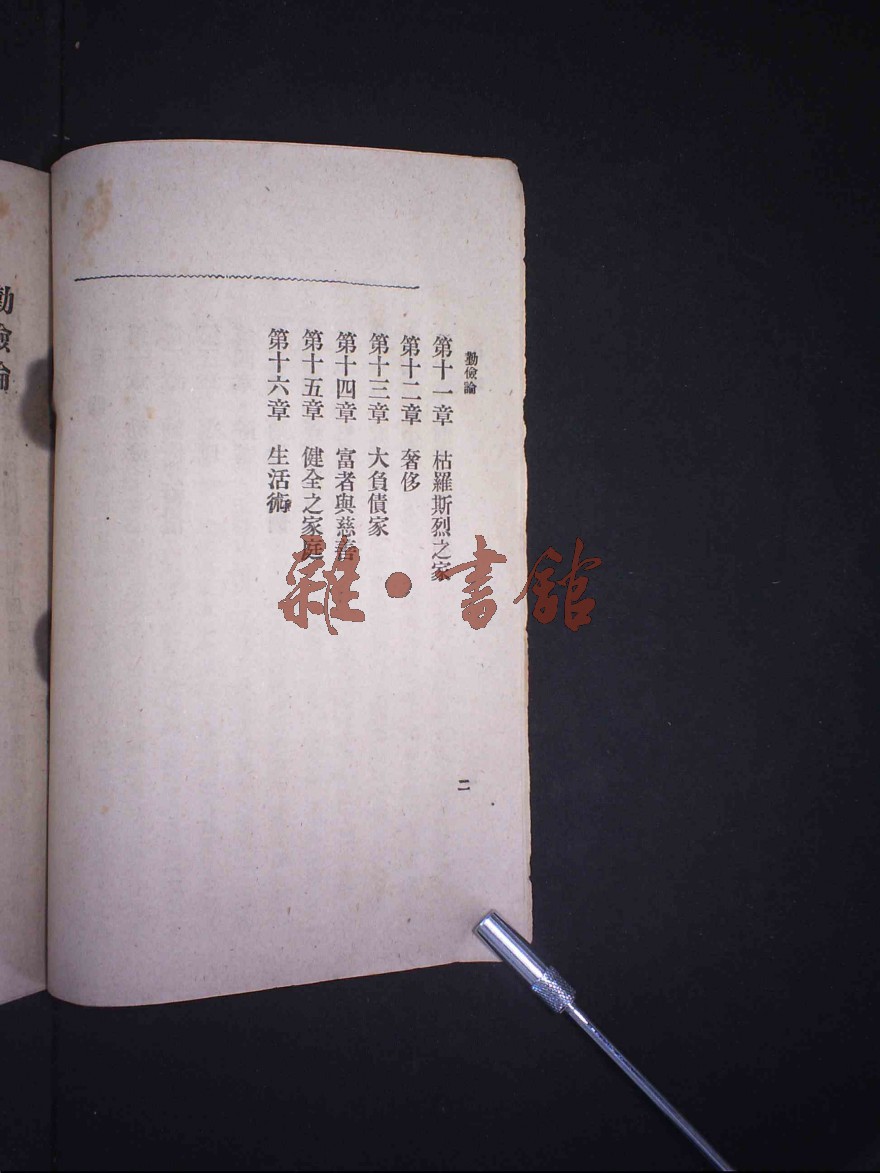 勤儉論
第十一章　枯羅斯烈之家
第十二章　奢侈
第十三章　大負債家
第十四章　富者與慈善
第十五章　健全之家庭
第十六章　生活術
二
勤儉論
雜·書館